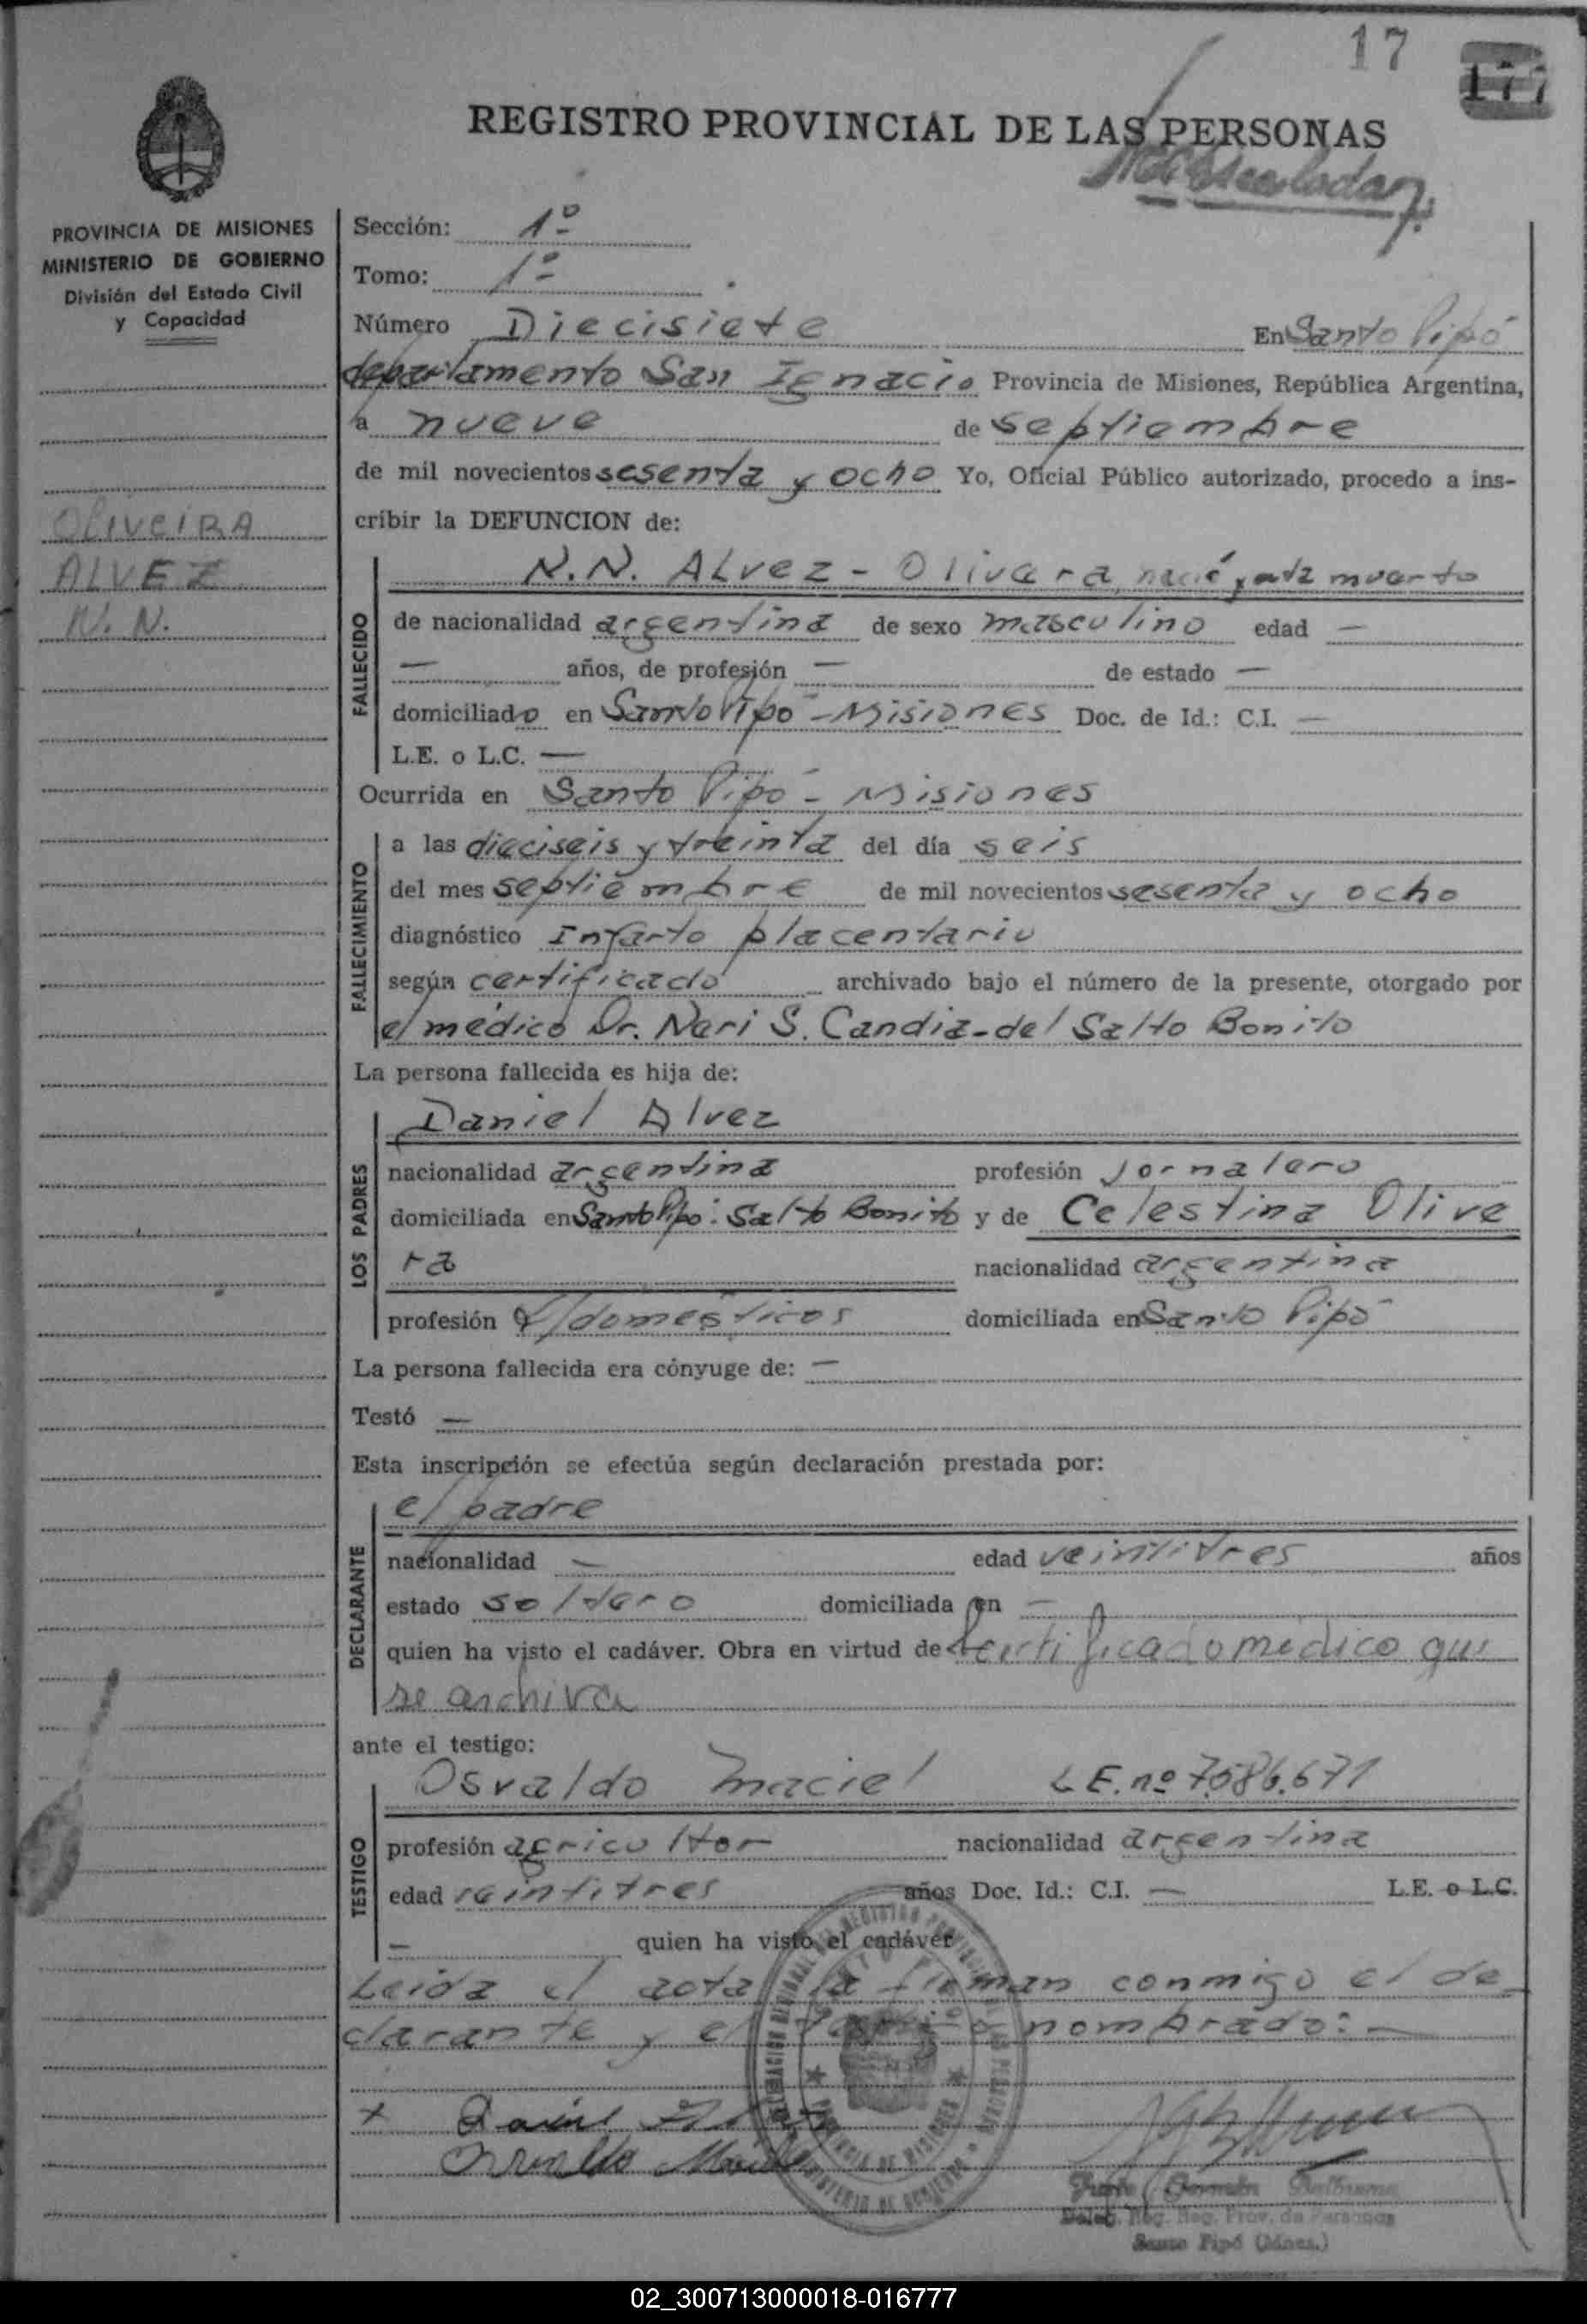 17
177
REGISTRO PROVINCIAL DE LAS PERSONAS
PROVINCIA DE MISIONES
MINISTERIO DE GOBIERNO
División del Estado Civil
y Capacidad
OLIVEIRA
ALVEZ
N. N.
Sección: 1º
Tomo: 1º
Número Diecisiete En Santo Pipó
departamento San Ignacio Provincia de Misiones, República Argentina,
a nueve de septiembre
de mil novecientos sesenta y ocho Yo, Oficial Público autorizado, procedo a ins-
cribir la DEFUNCION de:
FALLECIDO
N.N. ALvez - Olivera, nació muerto
de nacionalidad argentina de sexo masculino edad —
— años, de profesión — de estado —
domiciliado en Santo Pipó - Misiones Doc. de Id.: C.I. —
L.E. o L.C. —
Ocurrida en Santo Pipó - Misiones
FALLECIMIENTO
a las dieciseis y treinta del día seis
del mes septiembre de mil novecientos sesenta y ocho
diagnóstico Infarto placentario
según certificado archivado bajo el número de la presente, otorgado por
el médico Dr. Neri S. Candia - del Salto Bonito
La persona fallecida es hija de:
LOS PADRES
Daniel Alvez
nacionalidad argentina profesión Jornalero
domiciliada en Santo Pipó: Salto Bonito y de Celestina Olive
ra nacionalidad argentina
profesión Q/domésticos domiciliada en Santo Pipó
La persona fallecida era cónyuge de: —
Testó —
Esta inscripción se efectúa según declaración prestada por:
DECLARANTE
el padre
nacionalidad — edad veintitres años
estado soltero domiciliada en —
quien ha visto el cadáver. Obra en virtud de certificado medico que
se archiva
ante el testigo:
TESTIGO
Osvaldo Maciel L.E. nº 7.586.671
profesión agricultor nacionalidad argentina
edad veintitres años Doc. Id.: C.I. — L.E. o L.C.
— quien ha visto el cadáver
Leida el acta la firman conmigo el de
clarante y el testigo nombrado: —
x Daniel
Osvaldo Maciel
Deleg. Reg. Reg. Prov. de Personas
Santo Pipó (Mnes.)
02_300713000018-016777